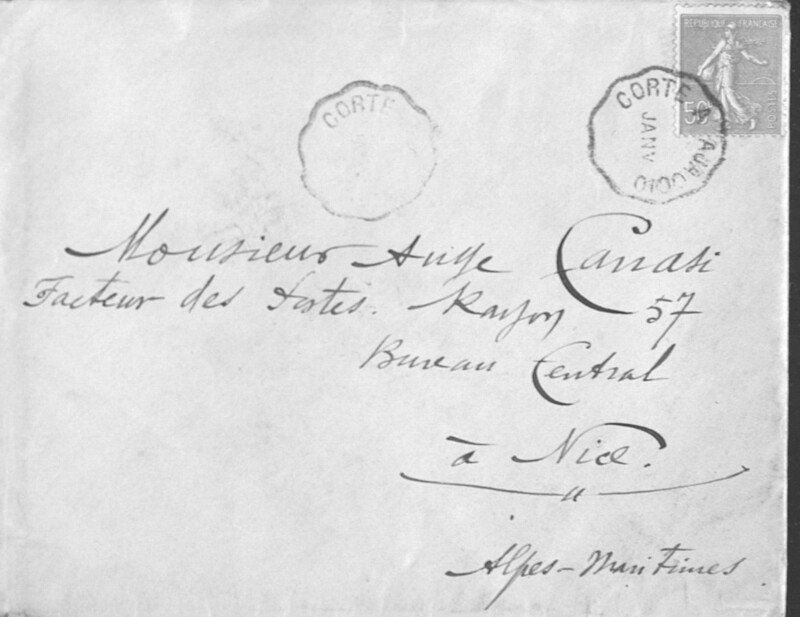 RÉPUBLIQUE FRANÇAISE
50
CORTE
CORTE A AJACCIO
JANV
Monsieur Ange Canasi
Facteur des Postes. Rayon 57
Bureau Central
à Nice.
Alpes-Maritimes